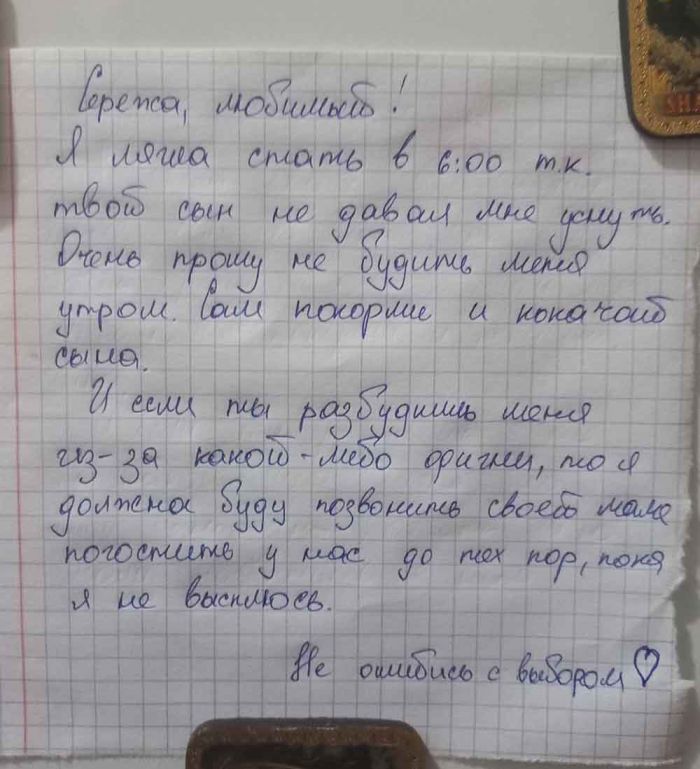 Сережа, любимый!
Я легла спать в 6:00 т.к.
твой сын не давал мне уснуть.
Очень прошу не будить меня
утром. Сам покорми и покачай
сына.
И если ты разбудишь меня
из-за какой-либо фигни, то я
должна буду позвонить своей маме
погостить у нас до тех пор, пока
я не высплюсь.
Не ошибись с выбором ♡